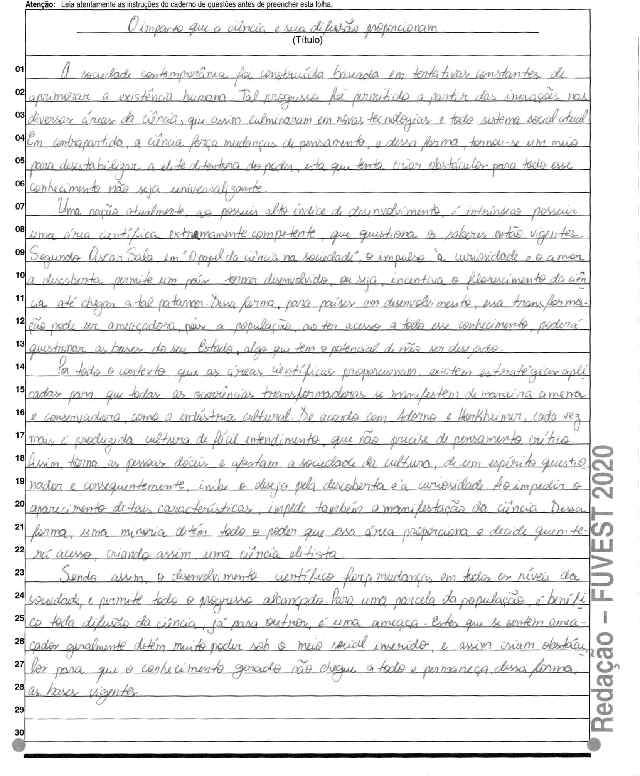 Atenção: Leia atentamente as instruções do caderno de questões antes de preencher esta folha.
O impacto que a ciência e sua difusão proporcionam
(Título)
01 A sociedade contemporânea foi construída baseada em tentativas constantes de
02 aprimorar a existência humana. Tal progresso foi permitido a partir das inovações nas
03 diversas áreas da ciência, que assim culminaram em novas tecnologias e todo sistema social atual.
04 Em contrapartida, a ciência força mudanças de pensamento, e dessa forma, tornou-se um meio
05 para desestabilizar a elite detentora do poder, esta que tenta criar obstáculos para todo esse
06 conhecimento não seja universalizante.
07 Uma nação atualmente, ao possuir alto índice de desenvolvimento, é intrínseco possuir
08 uma área científica extremamente competente, que questiona os saberes então vigentes.
09 Segundo Oscar Sala, em "O papel da ciência na sociedade", o impulso à curiosidade e o amor
10 a descoberta permite um país tornar desenvolvido, ou seja, incentiva o florescimento da ciên-
11 cia até chegar a tal patamar. Dessa forma, para países em desenvolvimento, essa transforma-
12 ção pode ser ameaçadora, pois a população, ao ter acesso a todo esse conhecimento, poderá
13 questionar as bases do seu Estado, algo que tem o potencial de não ser desejado.
14 Por todo o contexto que as áreas científicas proporcionam, existem estratégias apli-
15 cadas para que todas as ocorrências transformadoras se manifestem de maneira amena
16 e conservadora, como a indústria cultural. De acordo com Adorno e Horkheimer, cada vez
17 mais é produzida cultura de fácil entendimento, que não precise de pensamento crítico.
18 Assim torna as pessoas dóceis e afastam a sociedade da cultura, de um espírito questio-
19 nador e consequentemente, inibe o desejo pela descoberta e a curiosidade. Ao impedir o
20 aparecimento de tais características, impede também a manifestação da ciência. Dessa
21 forma, uma minoria detém todo o poder que essa área proporciona e decide quem te-
22 rá acesso, criando assim, uma ciência elitista.
23 Sendo assim, o desenvolvimento científico força mudanças em todos os níveis da
24 sociedade, e permite todo o progresso alcançado. Para uma parcela da população, é benéfi-
25 co toda difusão da ciência, já para outros, é uma ameaça. Estes que se sentem amea-
26 çados geralmente detém muito poder sob o meio social inserido, e assim criam obstácu-
27 los para que o conhecimento gerado não chegue a todo e permaneça, dessa forma,
28 as bases vigentes.
29
30
Redação – FUVEST 2020